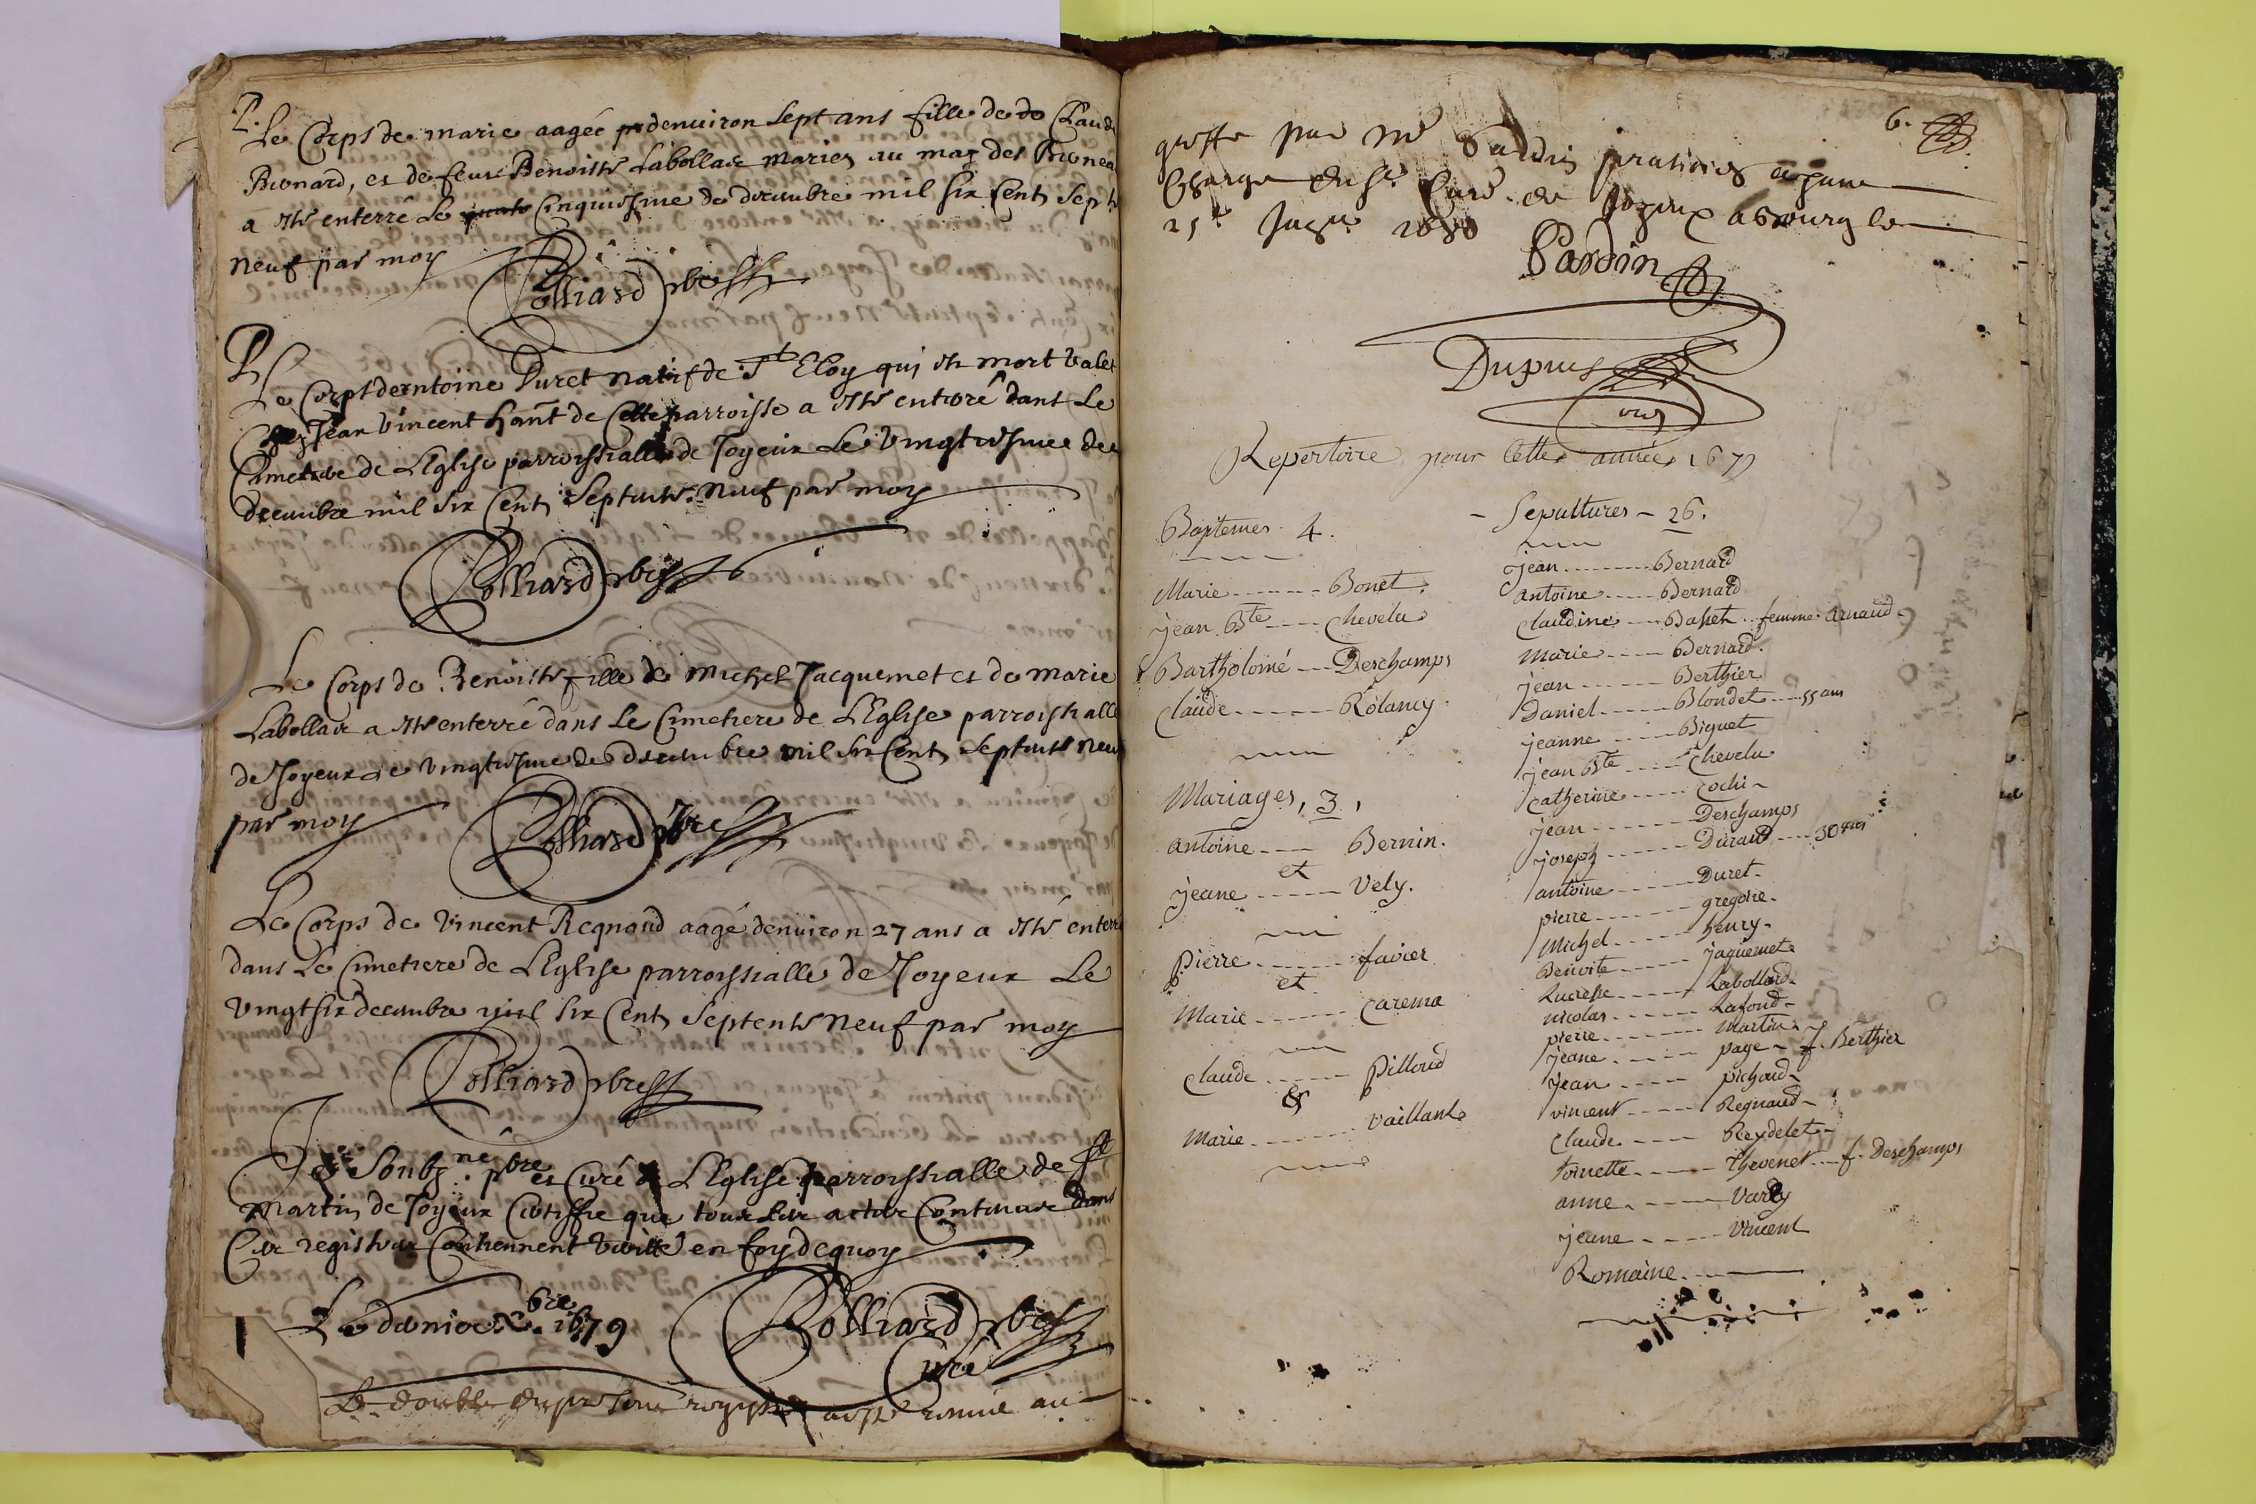 Le Corps de marie aagée denuiron sept ans fille de Claude
Bernard, et de feue Benoiste Labollar maries au mas des
a esté enterré le cinquiesme de decembre mil six Cents septte
neuf par moy
Polliard pbre
Le Corps dentoine Duret natif de St Eloy qui est mort valet
Chez Jean Vincent hant de Cette parroisse a esté enterré dans Le
Cimetiere de L'Eglise parroissialle de Joyeux Le vingtiesme de
decembre mil six Cents septente neuf par moy
Polliard pbre
Le Corps de Benoiste fille de Michel Jacquemet et de marie
Labollar a esté enterré dans Le Cimetiere de L'Eglise parroissialle
de Joyeux Le vingtiesme de decembre mil six Cents septente neuf
par moy
Polliard pbre
Le Corps de Vincent Regnard aagé denuiron 27 ans a esté enterré
dans Le Cimetiere de L'Eglise parroissialle de Joyeux Le
vingtsix decembre mil six Cents septente neuf par moy
Polliard pbre
Je Soubzné pbre et Curé de L'Eglise parroissialle de St
Martin de Joyeux Certiffie que tous les actes Contenus dans
Ces registres Contiennent verité en foy de quoy
Le dernier Xbre 1679
Polliard pbre
Curé
Le double du pnt registre a esté remis au
6.
greffe par Me praticien
Charge du Sr Curé de Joyeux a bourg le
25e 1680
Pardin
Dupuis
Repertoire pour Cette année 1679
Baptemes 4.
Marie Bonet.
jean Bte Chevelu
Bartholomé Deschamps
Claude Rolancy
Mariages, 3,
antoine Bernin.
et
jeane Vely.
pierre favier
et
Marie Carema
Claude Pilloud
&
Marie Vaillant
- Sepultures - 26.
jean Bernard
antoine Bernard
Claudine Basset femme arnaud
Marie Bernard.
jean Berthier
Daniel Blondet 55 ans
jeanne Biguet
jean Bte Chevelu
Catherine Cochi
jean Deschamps
joseph Durand 30 ans
antoine Duret
pierre gregoire
Michel henry
Benoite jaquemet
Lucresse Labollard
nicolas Lafond
pierre Martin
jeane page f. Berthier
jean pichaud
vincent Regnaud
Claude Reydelet
Toinette Thevenet f. Deschamps
anne Vardy
jeane Vincent
Romaine